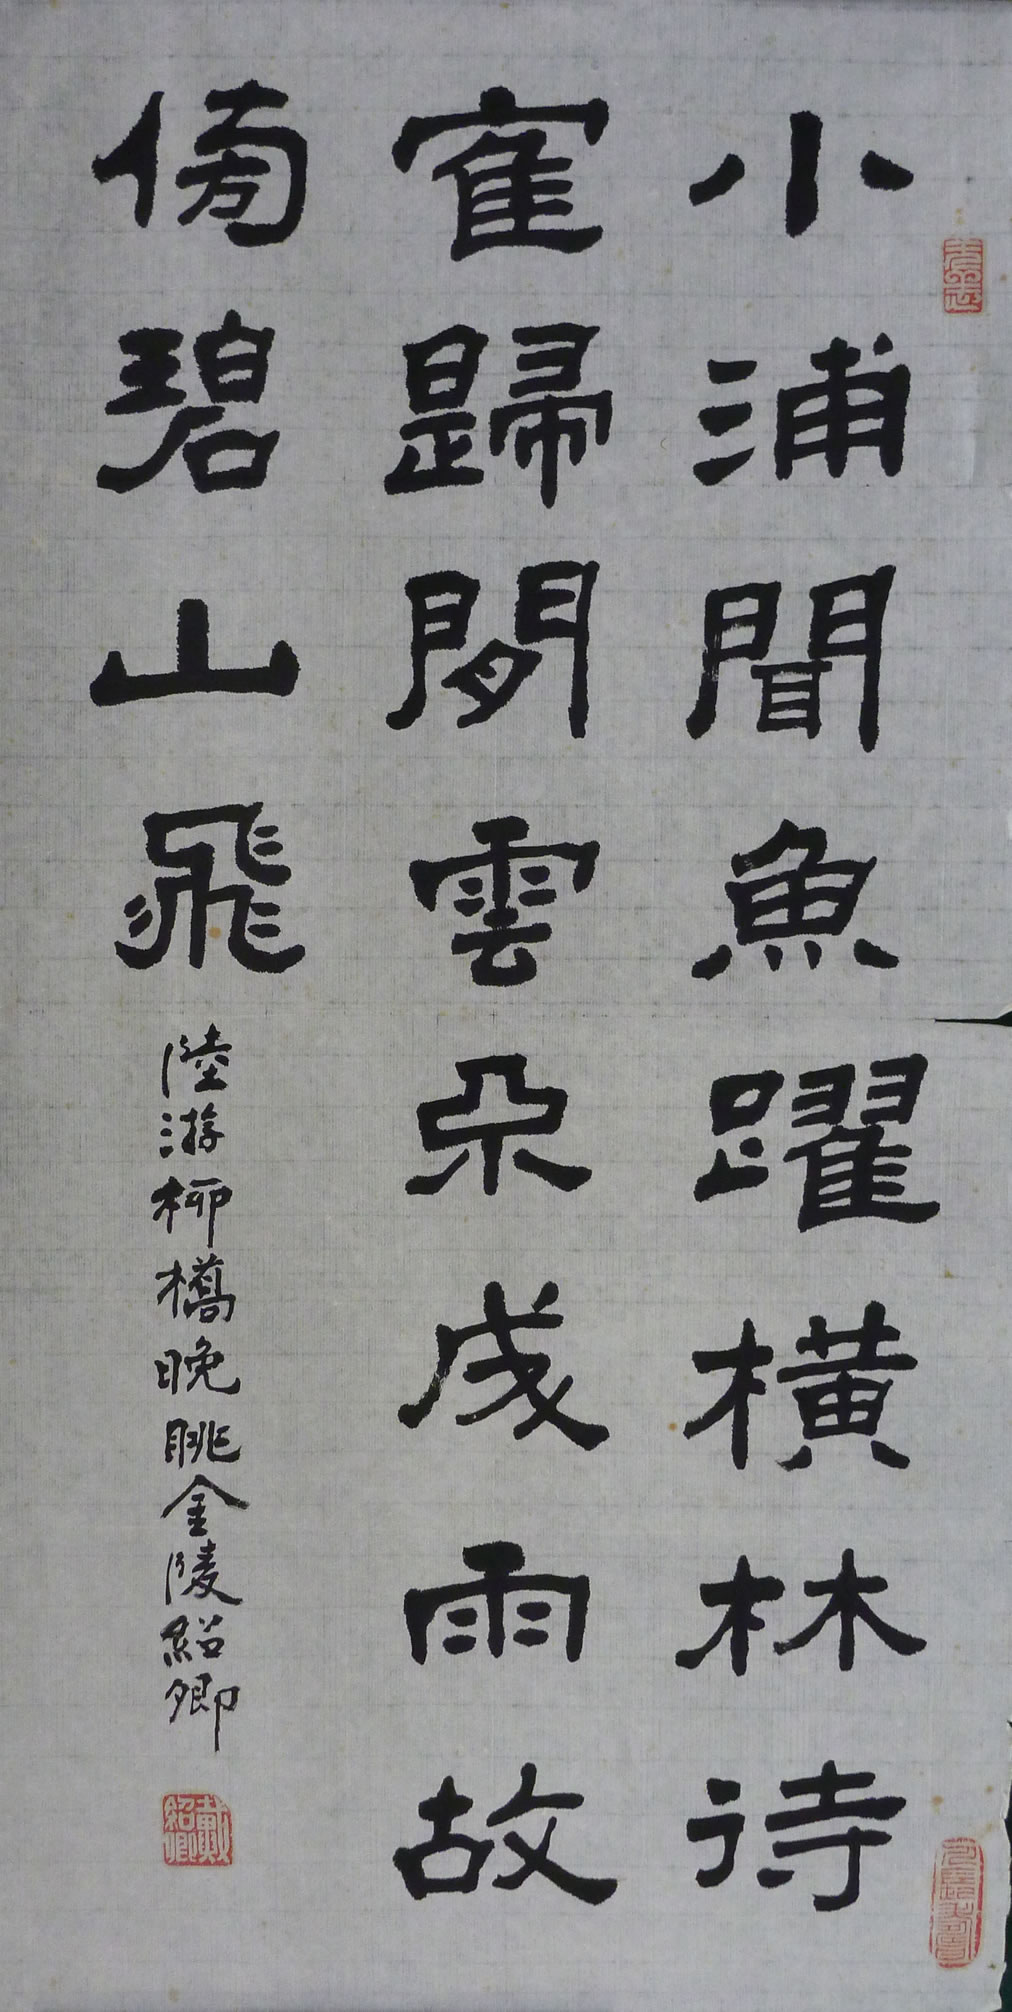 小浦聞魚躍橫林待
寉歸閒雲朵成雨故
傍碧山飛
陸游柳橋晚眺金陵紹卿
戴紹卿